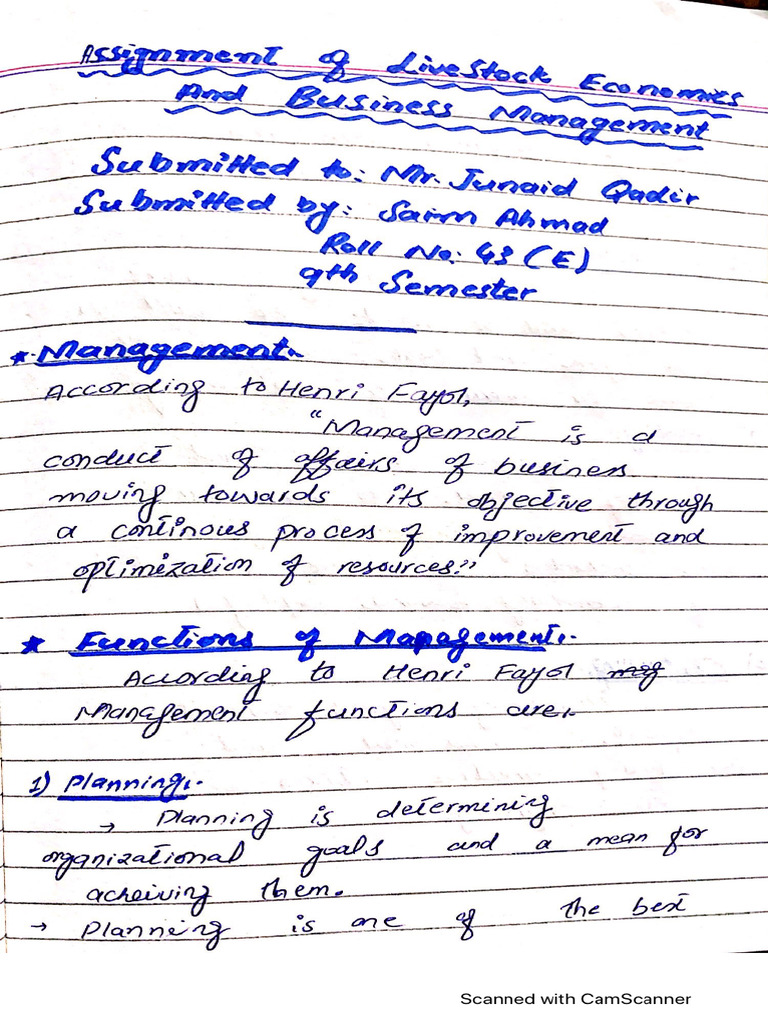 Assignment of LiveStock Economics
And Business Management
Submitted to: Mr. Junaid Qadir
Submitted by: Saim Ahmad
Roll No: 43 (E)
9th Semester
* Management:-
According to Henri Fayol,
"Management is a
conduct of affairs of business
moving towards its objective through
a continous process of improvement and
optimization of resources."
* Functions of Management:-
According to Henri Fayol
Management functions are:-
1) Planning:-
→ Planning is determining
organizational goals and a mean for
acheiving them.
→ Planning is one of the best
Scanned with CamScanner